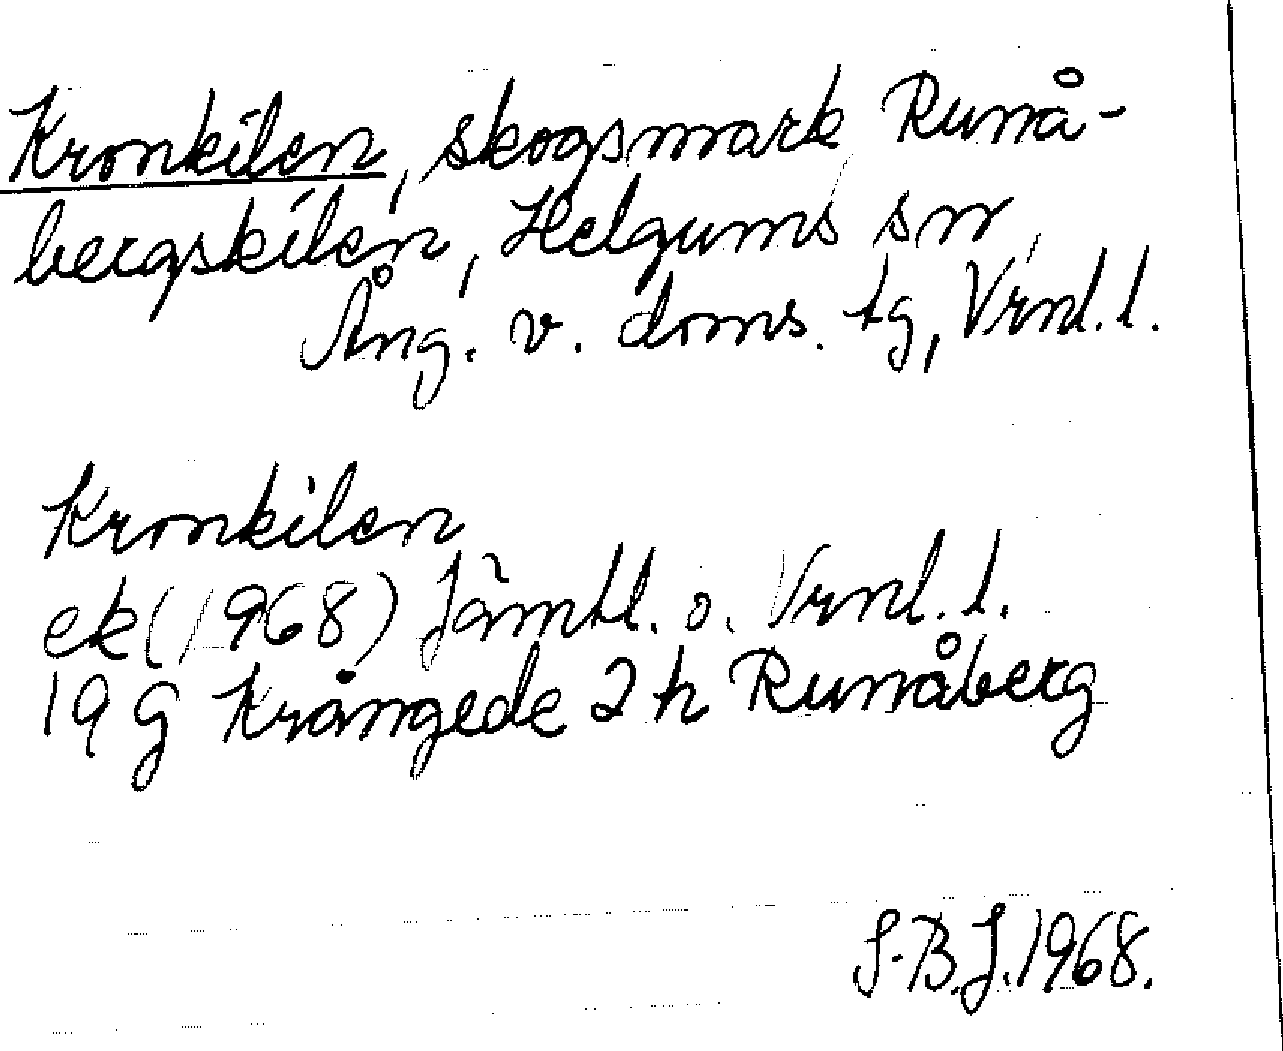 Kronkilen, skogsmark Runå-
bergskilen, Helgums sn,
Ång. v. doms. tg, Vrnl. l.
Kronkilen
ek (1968) Jämtl. o. Vrnl. l.
19 G Krångede 2 h Runåberg
S-B. J. 1968.